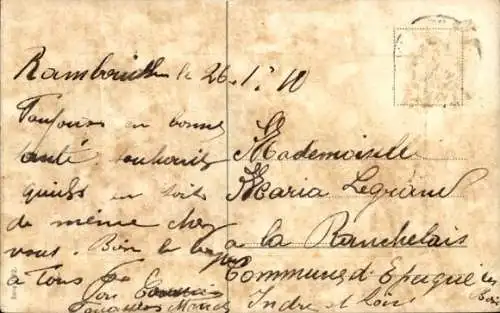 Rambouillet le 26.1.10
Toujours en bonne
santé souhaite
qu'il en soit
de même chez
vous. Bien le
à Tous
Mademoiselle
Maria Legrand
à la Ranchelais
Commune d'Epeigné les
Bois
Indre et Loire